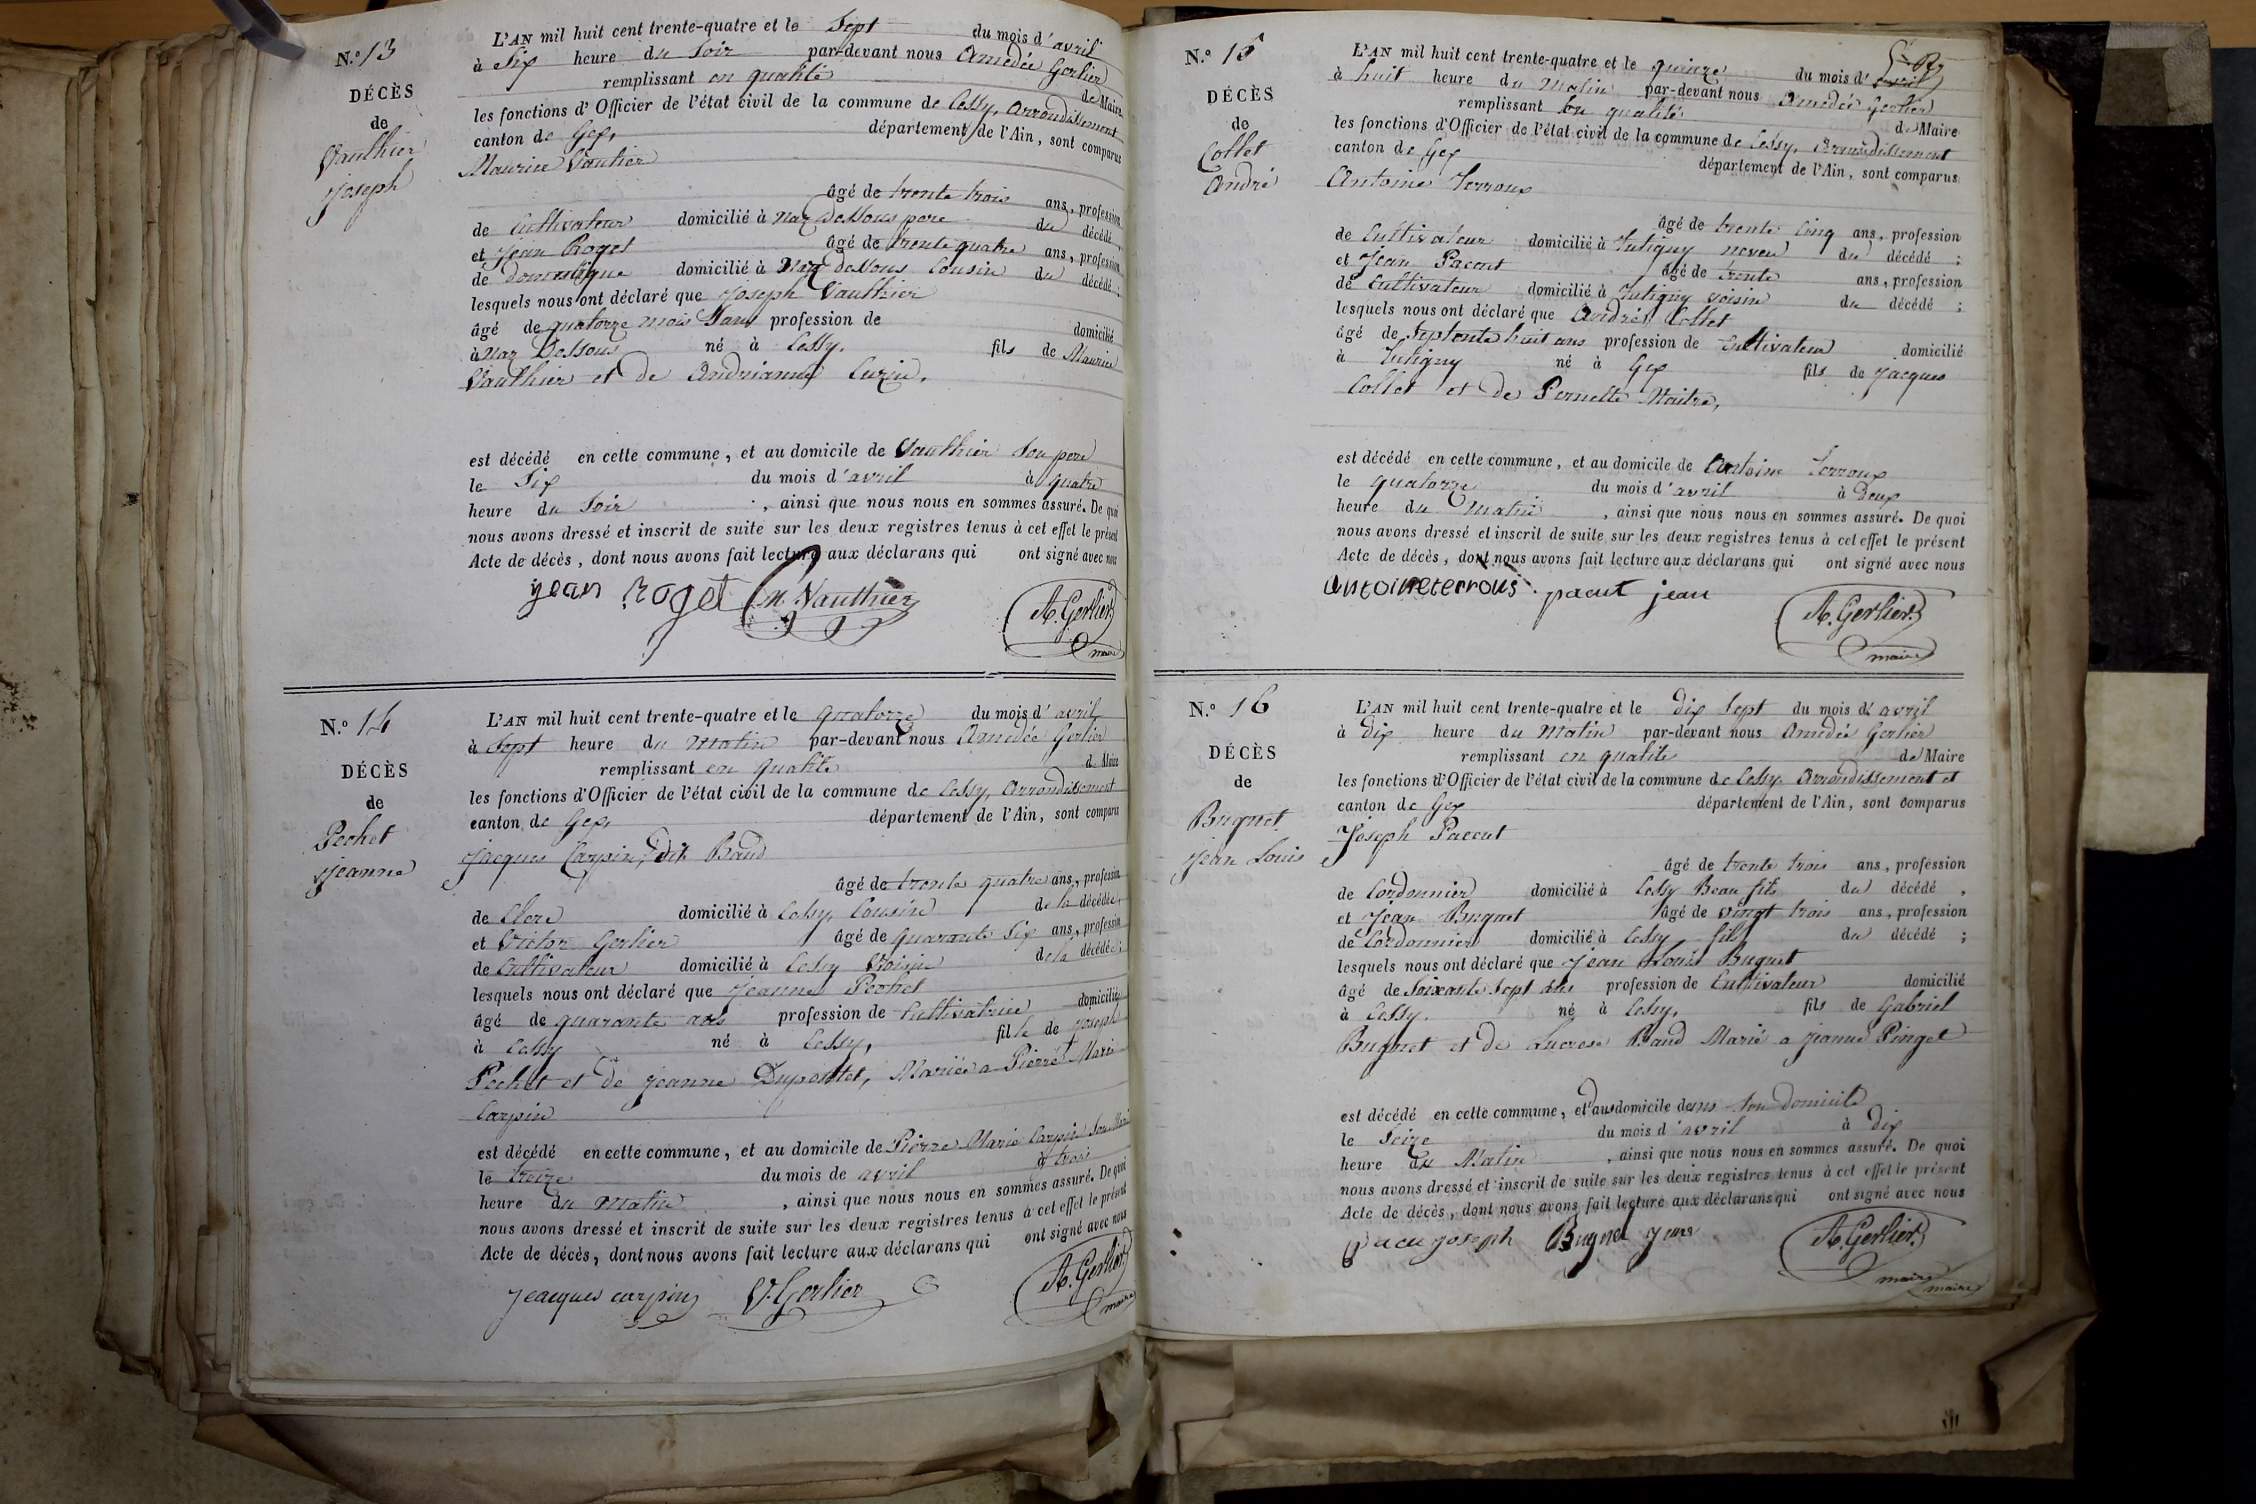 N.o 13
DÉCÈS
de
Vauthier
Joseph
L'AN mil huit cent trente-quatre et le Sept du mois d'avril
à Six heure du Soir par-devant nous Amedée Gerlier
remplissant en qualité de Maire
les fonctions d'Officier de l'état civil de la commune de Cessy, Arrondissement
canton de Gex, département de l'Ain, sont comparus
Maurice Vautier
âgé de trente trois ans, profession
de Cultivateur domicilié à Naz Dessous pere du décédé,
et Jean Roget âgé de trente quatre ans, profession
de domestique domicilié à Naz dessous Cousin du décédé;
lesquels nous ont déclaré que Joseph Vauthier
âgé de quatorze mois Sans profession de domicilié
à Naz Dessous né à Cessy. fils de Maurice
Vauthier et de Andrianne Curzin.
est décédé en cette commune, et au domicile de Vauthier Son pere
le Six du mois d'avril à quatre
heure du Soir, ainsi que nous nous en sommes assuré. De quoi
nous avons dressé et inscrit de suite sur les deux registres tenus à cet effet le présent
Acte de décès, dont nous avons fait lecture aux déclarans qui ont signé avec nous
jean Roget M. Vauthier A. Gerlier
maire
N.o 14
DÉCÈS
de
Pechet
Jeanne
L'AN mil huit cent trente-quatre et le quatorze du mois d'avril
à Sept heure du Matin par-devant nous Amedée Gerlier
remplissant en qualité de Maire
les fonctions d'Officier de l'état civil de la commune de Cessy, Arrondissement
canton de Gex, département de l'Ain, sont comparu
Jacques Carpin, dit Baud
âgé de trente quatre ans, profession
de Clerc domicilié à Cessy, Cousin de la décédée,
et Victor Gerlier âgé de quarante Six ans, profession
de Cultivateur domicilié à Cessy Voisin de la décédée;
lesquels nous ont déclaré que Jeanne Pechet
âgé de quarante ans profession de Cultivatrice domicilié
à Cessy né à Cessy, fille de Joseph
Pechet et de Jeanne Dupontet, Mariée a Pierre Marie
Carpin
est décédé en cette commune, et au domicile de Pierre Marie Carpin Son Mari
le treize du mois de avril à trois
heure du Matin, ainsi que nous nous en sommes assuré. De quoi
nous avons dressé et inscrit de suite sur les deux registres tenus à cet effet le présent
Acte de décès, dont nous avons fait lecture aux déclarans qui ont signé avec nous
Jeacques carpin V. Gerlier A. Gerlier
maire
N.o 15
DÉCÈS
de
Collet
André
L'AN mil huit cent trente-quatre et le quinze du mois d'avril
à huit heure du Matin par-devant nous Amedée Gerlier
remplissant En qualité de Maire
les fonctions d'Officier de l'état civil de la commune de Cessy, Arrondissement
canton de Gex département de l'Ain, sont comparus
Antoine Terroux
âgé de trente Cinq ans, profession
de Cultivateur domicilié à Tutigny neveu du décédé;
et Jean Pacout âgé de trente ans, profession
de Cultivateur domicilié à Tutigny voisin du décédé;
lesquels nous ont déclaré que André Collet
âgé de Septente huit ans profession de Cultivateur domicilié
à Tutigny né à Gex fils de Jacques
Collet et de Pernette Maitre,
est décédé en cette commune, et au domicile de Antoine Terroux
le quatorze du mois d'avril à Deux
heure du Matin, ainsi que nous nous en sommes assuré. De quoi
nous avons dressé et inscrit de suite sur les deux registres tenus à cet effet le présent
Acte de décès, dont nous avons fait lecture aux déclarans qui ont signé avec nous
antoineterrous pacut jean A. Gerlier
maire
N.o 16
DÉCÈS
de
Bugnet
Jean Louis
L'AN mil huit cent trente-quatre et le dix Sept du mois d'avril
à Dix heure du Matin par-devant nous Amedée Gerlier
remplissant en qualité de Maire
les fonctions d'Officier de l'état civil de la commune de Cessy. Arrondissement et
canton de Gex département de l'Ain, sont comparus
Joseph Paccut
âgé de trente trois ans, profession
de Cordonnier domicilié à Cessy Beau fils du décédé,
et Jean Bugnet âgé de vingt trois ans, profession
de Cordonnier domicilié à Cessy fils du décédé;
lesquels nous ont déclaré que Jean Louis Bugnet
âgé de Soixante Sept ans profession de Cultivateur domicilié
à Cessy. né à Cessy, fils de Gabriel
Bugnet et de Lucrese Baud Marié a Jeanne Pinget
est décédé en cette commune, et dans domicile dems Son domicile
le Seize du mois d'avril à dix
heure du Matin, ainsi que nous nous en sommes assuré. De quoi
nous avons dressé et inscrit de suite sur les deux registres tenus à cet effet le présent
Acte de décès, dont nous avons fait lecture aux déclarans qui ont signé avec nous
Pacu joseph Bugnet A. Gerlier
maire
maire